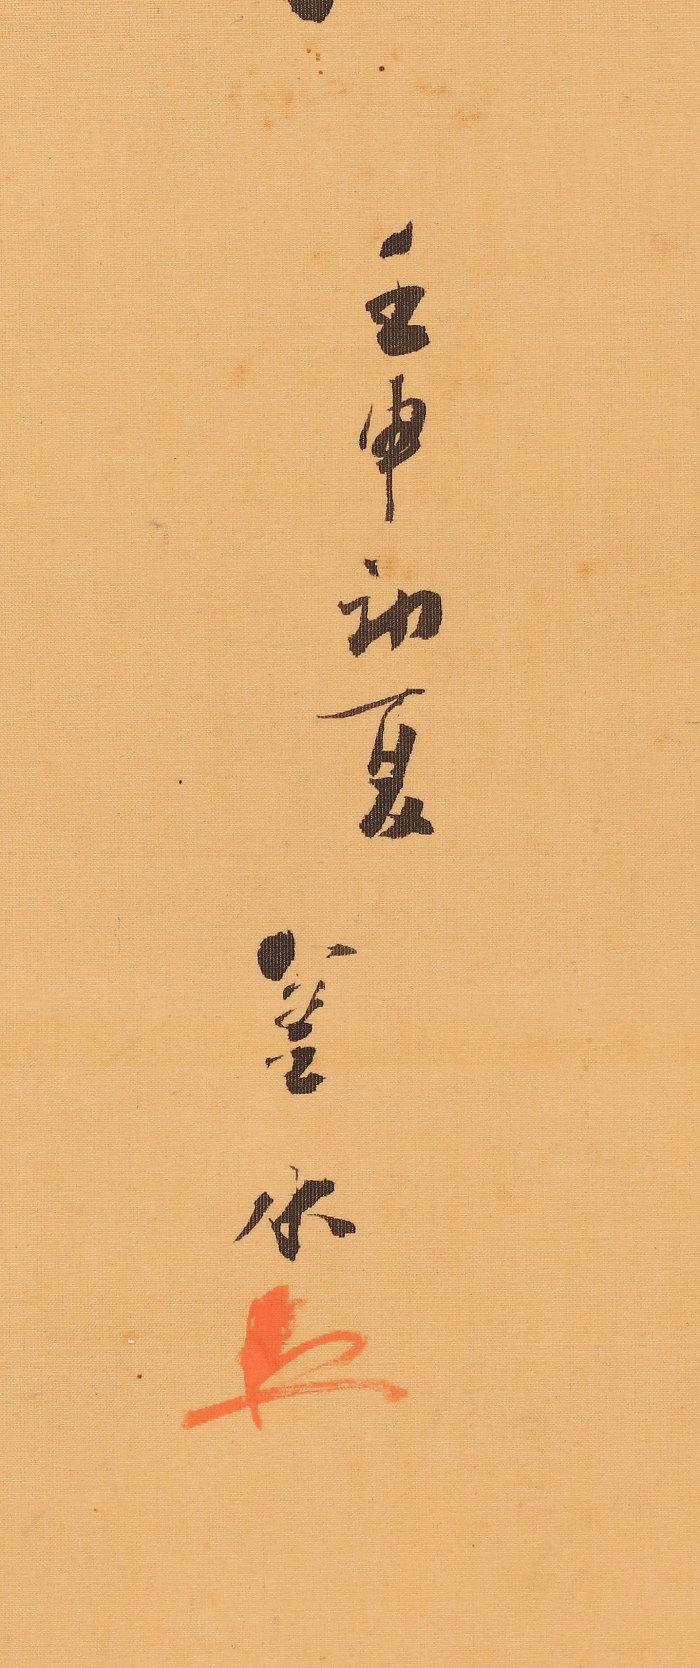 壬申初夏
釜水